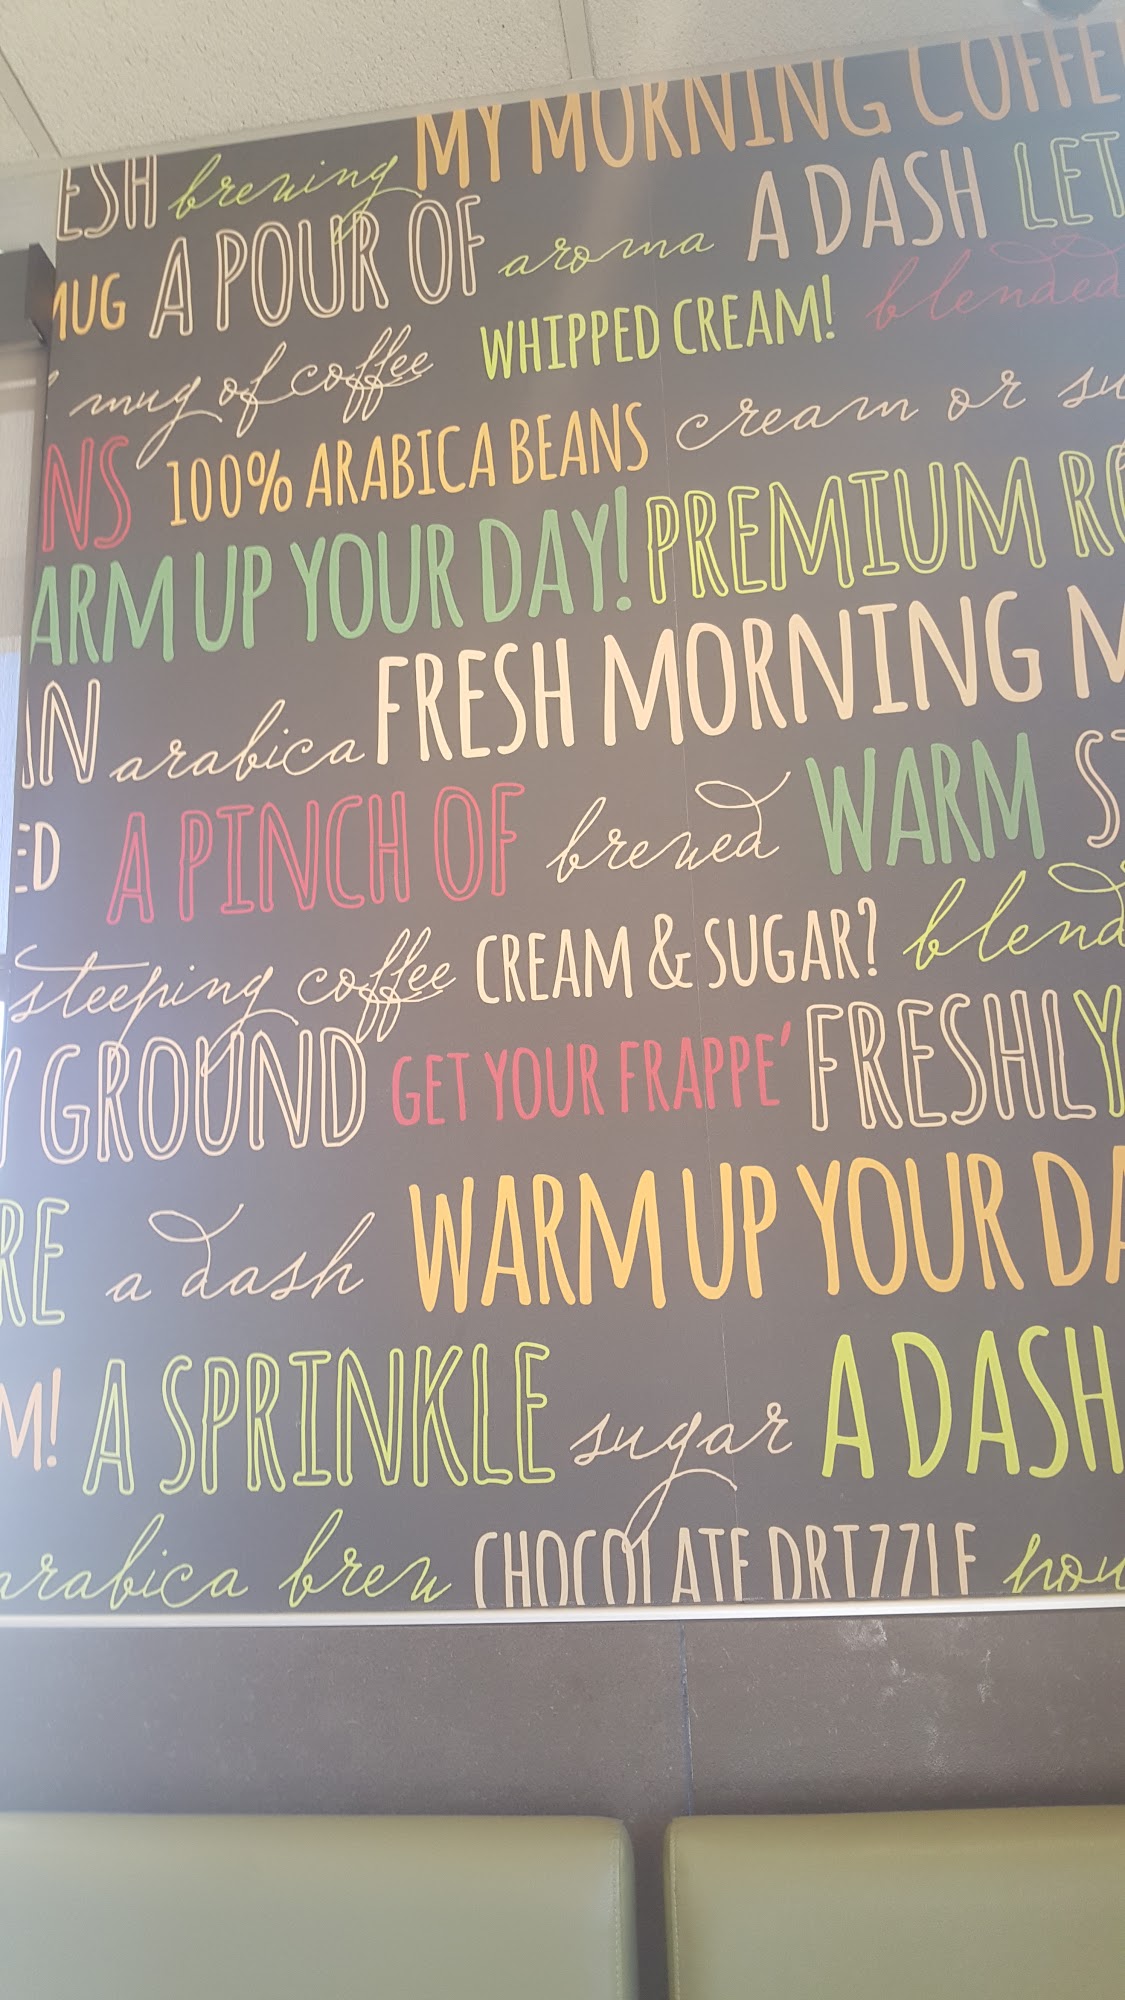 ESH brewing MY MORNING COFFE
MUG A POUR OF aroma A DASH LET
mug of coffee WHIPPED CREAM! blended
NS 100% ARABICA BEANS cream or su
ARM UP YOUR DAY! PREMIUM RO
AN arabica FRESH MORNING M
ED A PINCH OF brewed WARM ST
steeping coffee CREAM & SUGAR? blend
Y GROUND GET YOUR FRAPPE' FRESHLY
RE a dash WARM UP YOUR DA
M! A SPRINKLE sugar A DASH
arabica brew CHOCOLATE DRIZZLE hou